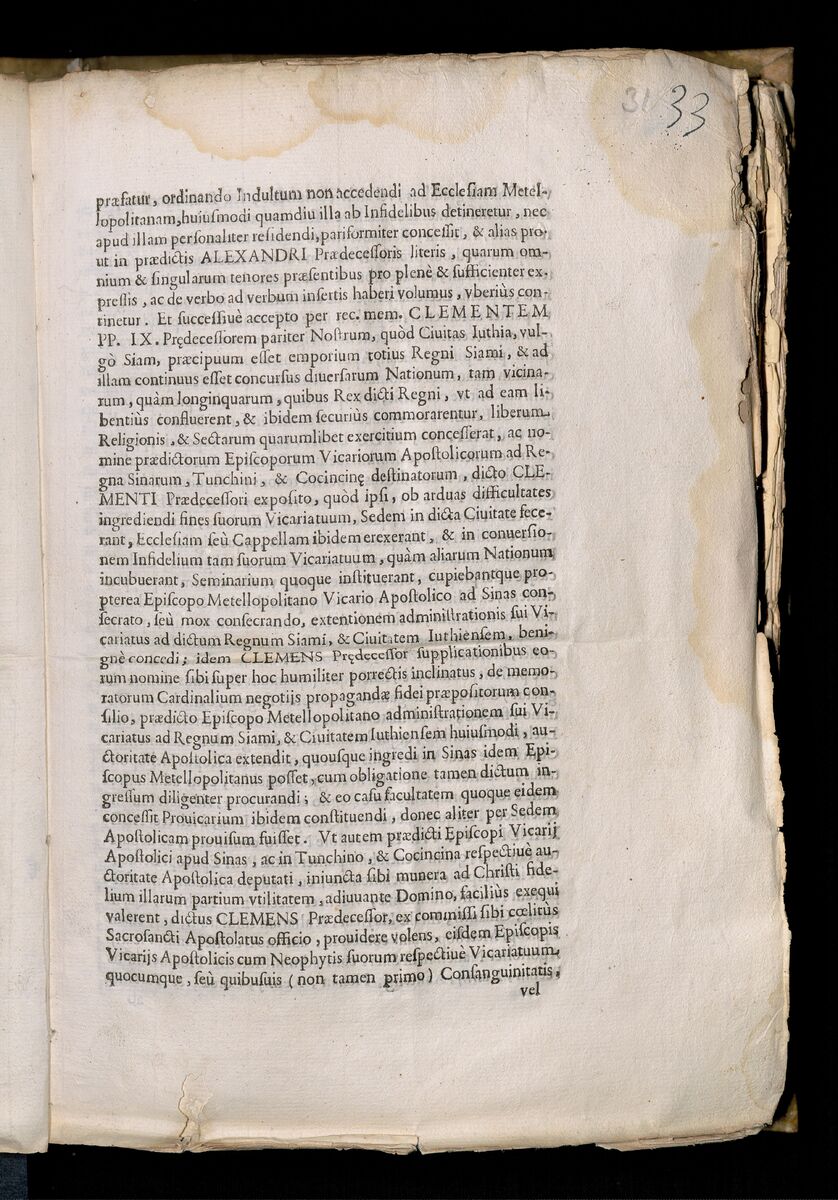 31 33
præfatur, ordinando Indultum non accedendi ad Ecclesiam Metel-
lopolitanam, huiusmodi quamdiu illa ab Infidelibus detineretur, nec
apud illam personaliter residendi, pariformiter concessit, & alias pro-
ut in prædictis ALEXANDRI Prædecessoris literis, quarum om-
nium & singularum tenores præsentibus pro plenè & sufficienter ex-
pressis, ac de verbo ad verbum insertis haberi volumus, vberiùs con-
tinetur. Et successiuè accepto per rec. mem. CLEMENTEM
PP. IX. Prędecessorem pariter Nostrum, quòd Ciuitas Iuthia, vul-
gò Siam, præcipuum esset emporium totius Regni Siami, & ad
illam continuus esset concursus diuersarum Nationum, tam vicina-
rum, quàm longinquarum, quibus Rex dicti Regni, vt ad eam li-
bentiùs confluerent, & ibidem securiùs commorarentur, liberum
Religionis, & Sectarum quarumlibet exercitium concesserat, ac no-
mine prædictorum Episcoporum Vicariorum Apostolicorum ad Re-
gna Sinarum, Tunchini, & Cocincinę destinatorum, dicto CLE-
MENTI Prædecessori exposito, quòd ipsi, ob arduas difficultates
ingrediendi fines suorum Vicariatuum, Sedem in dicta Ciuitate fece-
rant, Ecclesiam seù Cappellam ibidem erexerant, & in conuersio-
nem Infidelium tam suorum Vicariatuum, quàm aliarum Nationum
incubuerant, Seminarium quoque instituerant, cupiebantque pro-
pterea Episcopo Metellopolitano Vicario Apostolico ad Sinas con-
secrato, seù mox consecrando, extentionem administrationis sui Vi-
cariatus ad dictum Regnum Siami, & Ciuitatem Iuthiensem, beni-
gnè concedi; idem CLEMENS Prędecessor supplicationibus eo-
rum nomine sibi super hoc humiliter porrectis inclinatus, de memo-
ratorum Cardinalium negotijs propagandæ fidei præpositorum con-
silio, prædicto Episcopo Metellopolitano administrationem sui Vi-
cariatus ad Regnum Siami, & Ciuitatem Iuthiensem huiusmodi, au-
ctoritate Apostolica extendit, quousque ingredi in Sinas idem Epi-
scopus Metellopolitanus posset, cum obligatione tamen dictum in-
gressum diligenter procurandi; & eo casu facultatem quoque eidem
concessit Prouicarium ibidem constituendi, donec aliter per Sedem
Apostolicam prouisum fuisset. Vt autem prædicti Episcopi Vicarij
Apostolici apud Sinas, ac in Tunchino, & Cocincina respectiuè au-
ctoritate Apostolica deputati, iniuncta sibi munera ad Christi fide-
lium illarum partium vtilitatem, adiuuante Domino, faciliùs exequi
valerent, dictus CLEMENS Prædecessor, ex commissi sibi cœlitùs
Sacrosancti Apostolatus officio, prouidere volens, eisdem Episcopis
Vicarijs Apostolicis cum Neophytis suorum respectiuè Vicariatuum
quocumque, seù quibusuis (non tamen primo) Consanguinitatis,
vel